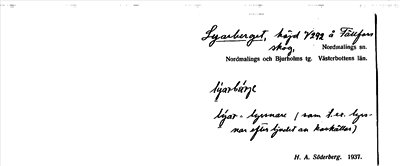 Lyarberget, höjd V292 å Fällfors
skog, Nordmalings sn.
Nordmalings och Bjurholms tg. Västerbottens län.
lýarbärje
lýar = lyssnare (som t.ex. lyss-
nar efter ljudet av korskällor)
H. A. Söderberg. 1937.